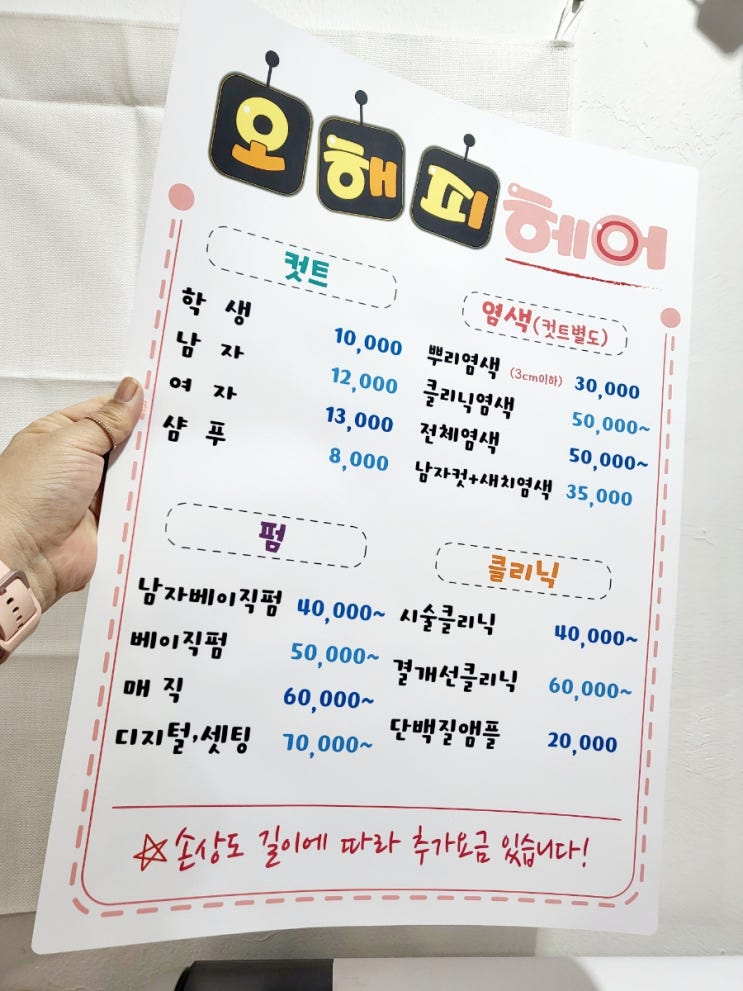 오해피헤어
컷트
학 생 10,000
남 자 12,000
여 자 13,000
샴 푸 8,000
염색(컷트별도)
뿌리염색 (3cm이하) 30,000
클리닉염색 50,000~
전체염색 50,000~
남자컷+새치염색 35,000
펌
남자베이직펌 40,000~
베이직펌 50,000~
매 직 60,000~
디지털,셋팅 70,000~
클리닉
시술클리닉 40,000~
결개선클리닉 60,000~
단백질앰플 20,000
☆손상도 길이에 따라 추가요금 있습니다!